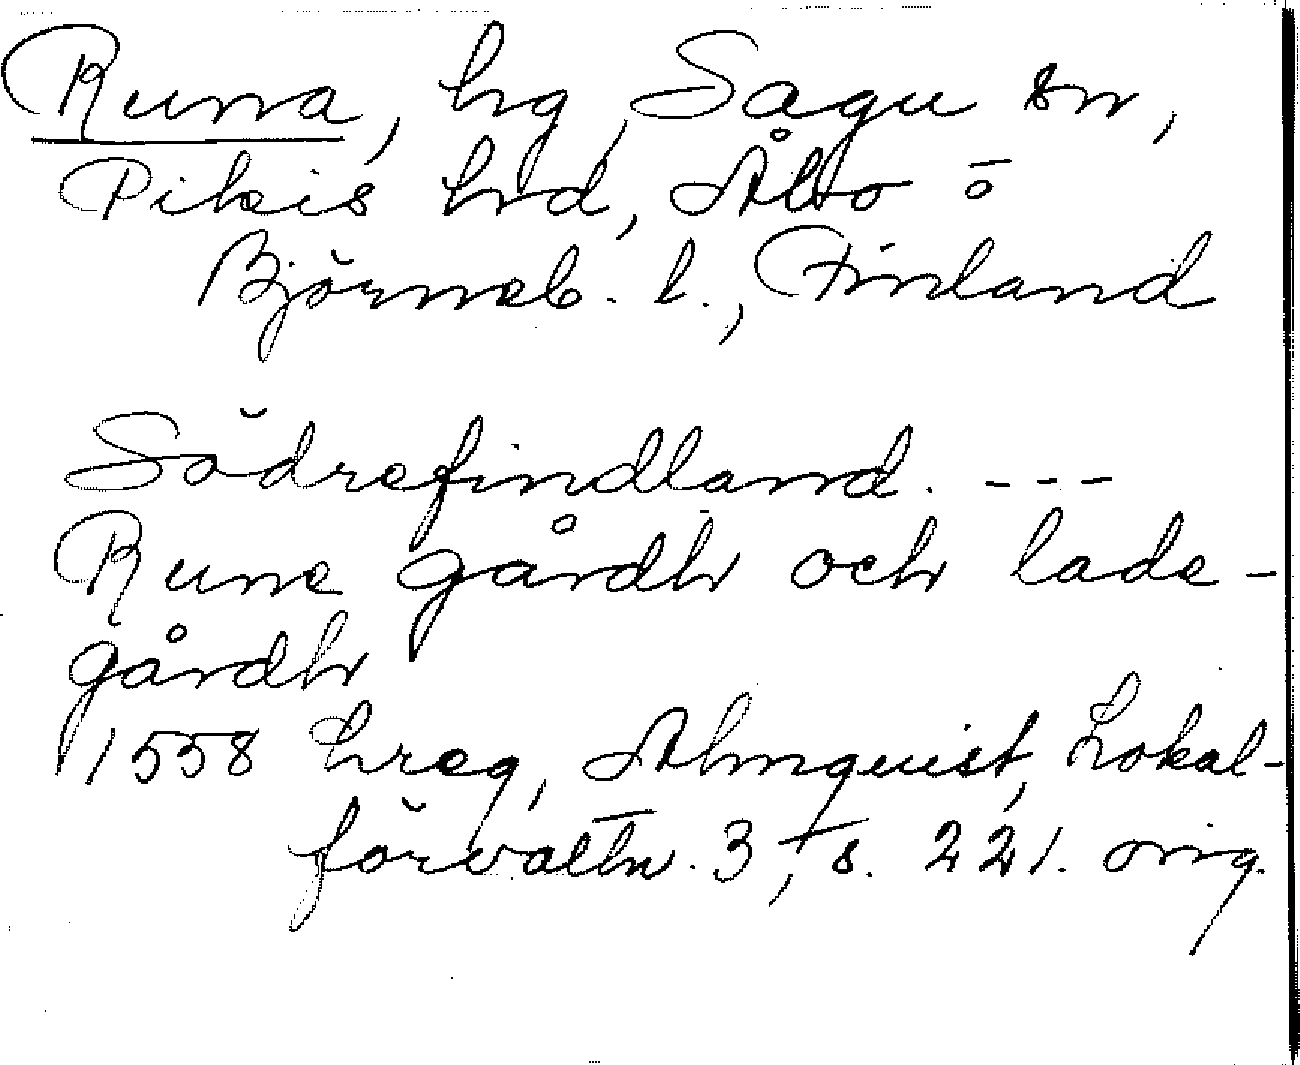 Runa, hg, Sagu sn,
Pikis hrd, Åbo o
Björneb. l., Finland
Södrefindland. ---
Rune gårdh och lade-
gårdh
1558 hreg, Almquist, Lokal-
förvaltn. 3, s. 221. orig.